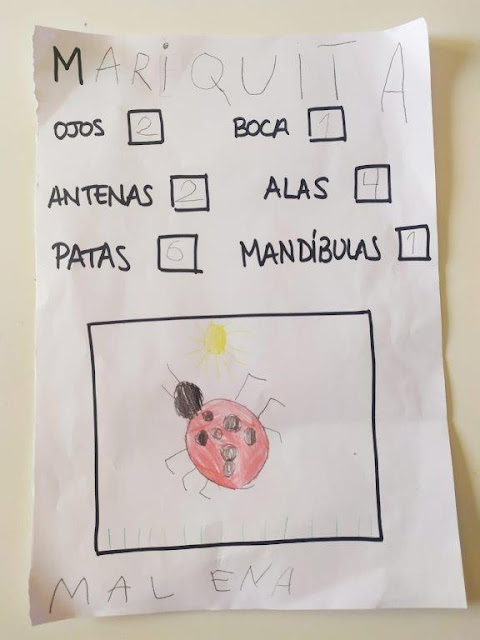 MARIQUITA
OJOS 2 BOCA 1
ANTENAS 2 ALAS 4
PATAS 6 MANDÍBULAS 1
MALENA